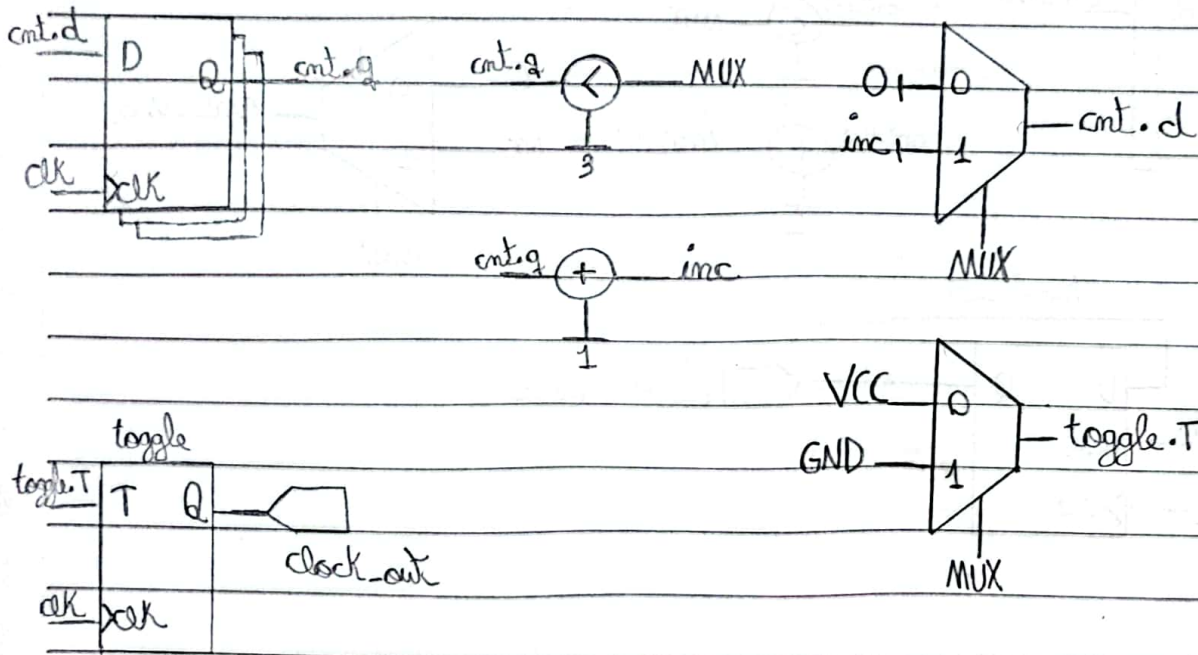 cnt.d
D
Q
cnt.q
clk
clk
cnt.q
<
MUX
3
0
0
inc
1
cnt.d
MUX
cnt.q
+
inc
1
VCC
0
GND
1
toggle.T
MUX
toggle
toggle.T
T
Q
clock_out
clk
clk